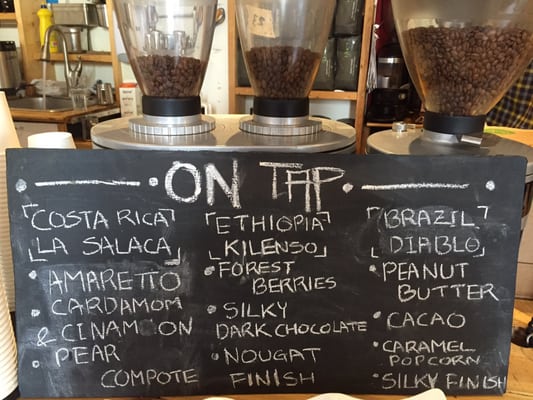 ON TAP
COSTA RICA
LA SALACA
• AMARETTO
• CARDAMOM
& CINAMON
• PEAR
COMPOTE
ETHIOPIA
KILENSO
• FOREST
BERRIES
• SILKY
DARK CHOCOLATE
• NOUGAT
FINISH
BRAZIL
DIABLO
• PEANUT
BUTTER
• CACAO
• CARAMEL
POPCORN
• SILKY FINISH